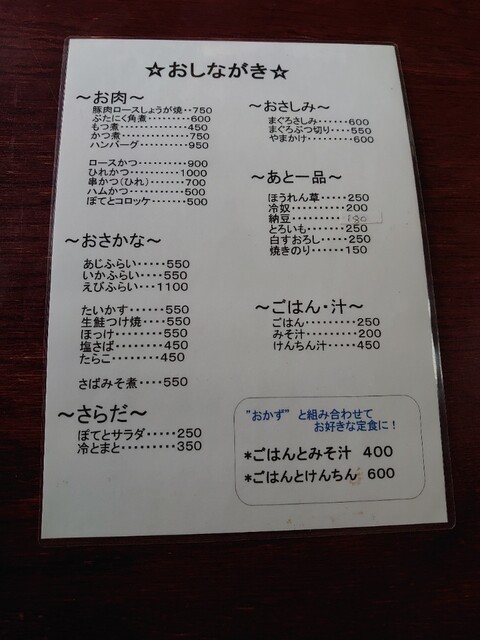 ☆おしながき☆
～お肉～
豚肉ロースしょうが焼‥750
ぶたにく角煮‥‥‥‥600
もつ煮‥‥‥‥‥‥450
かつ煮‥‥‥‥‥‥750
ハンバーグ‥‥‥‥‥950
ロースかつ‥‥‥‥‥900
ひれかつ‥‥‥‥‥1000
串かつ(ひれ)‥‥‥‥700
ハムかつ‥‥‥‥‥500
ぽてとコロッケ‥‥‥‥500
～おさかな～
あじふらい‥‥‥550
いかふらい‥‥‥550
えびふらい‥‥1100
たいかす‥‥‥550
生鮭つけ焼‥‥‥550
ほっけ‥‥‥‥550
塩さば‥‥‥‥450
たらこ‥‥‥‥450
さばみそ煮‥‥‥550
～さらだ～
ぽてとサラダ‥‥‥250
冷とまと‥‥‥‥350
～おさしみ～
まぐろさしみ‥‥‥‥600
まぐろぶつ切り‥‥‥550
やまかけ‥‥‥‥‥600
～あと一品～
ほうれん草‥‥‥250
冷奴‥‥‥‥‥200
納豆‥‥‥‥‥180
とろいも‥‥‥‥250
白すおろし‥‥‥250
焼きのり‥‥‥‥150
～ごはん・汁～
ごはん‥‥‥‥‥250
みそ汁‥‥‥‥‥200
けんちん汁‥‥‥‥450
"おかず" と組み合わせて
お好きな定食に！
*ごはんとみそ汁 400
*ごはんとけんちん 600